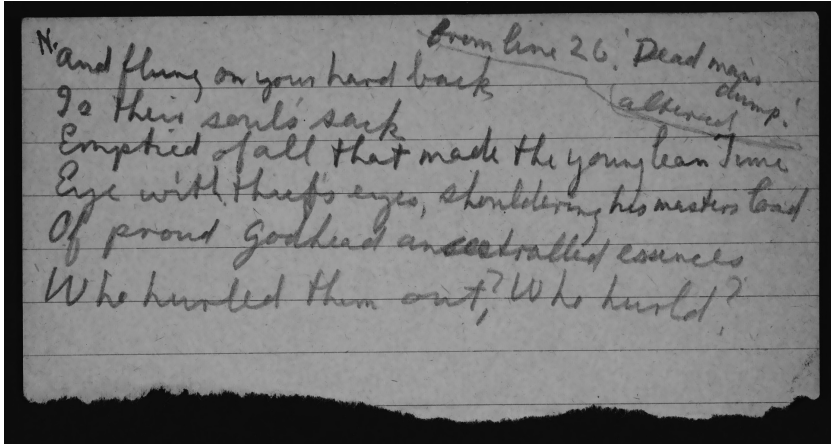 From line 26. 'Dead man's
dump.'
altered
N. And flung on your hard back
Is their souls sack
Emptied of all that made the young lean Time
Eye with thief's eyes, shouldering his masters load
Of proud Godhead ancestralled essences
Who hurled them out? Who hurld?